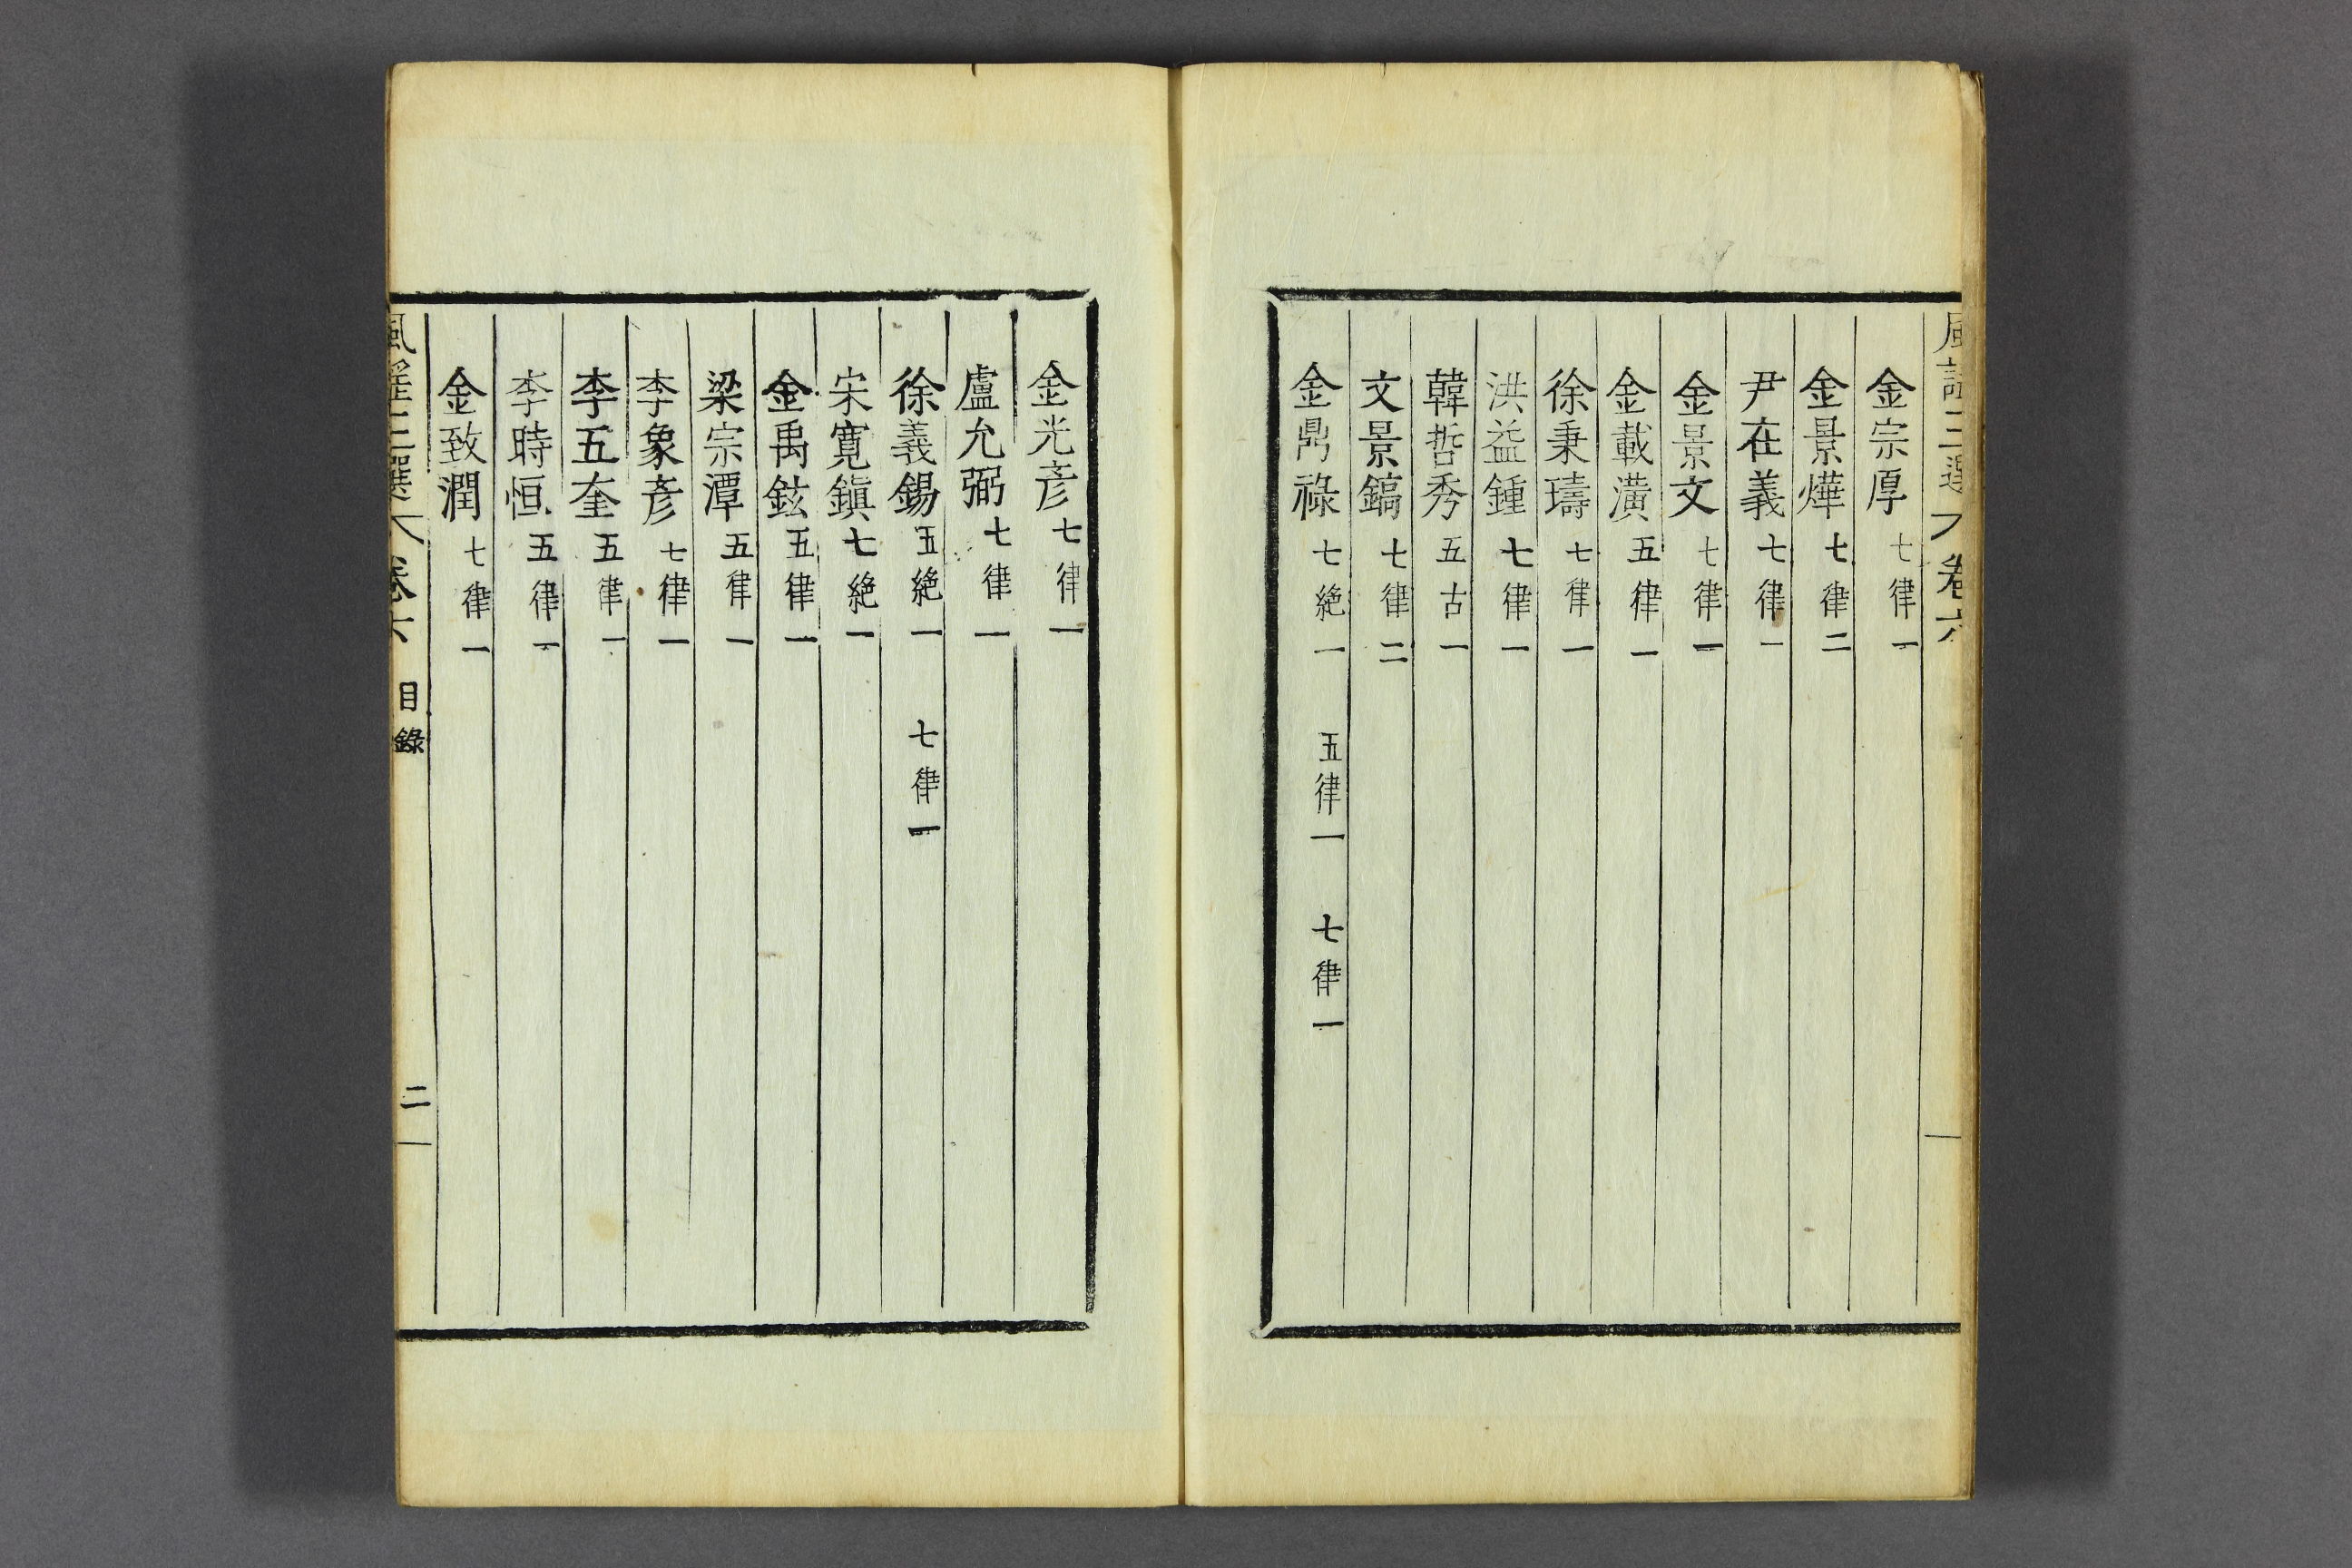 風謠三選 卷六
金宗厚 七律一
金景燁 七律二
尹在義 七律一
金景文 七律一
金載潢 五律一
徐秉璹 七律一
洪益鍾 七律一
韓哲秀 五古一
文景鎬 七律二
金鼎祿 七絶一 五律一 七律一
金光彦 七律一
盧允弼 七律一
徐義錫 五絶一 七律一
宋寬鎭 七絶一
金禹鉉 五律一
梁宗潭 五律一
李象彦 七律一
李五奎 五律一
李時恒 五律一
金致潤 七律一
風謠三選 卷六 目錄 二